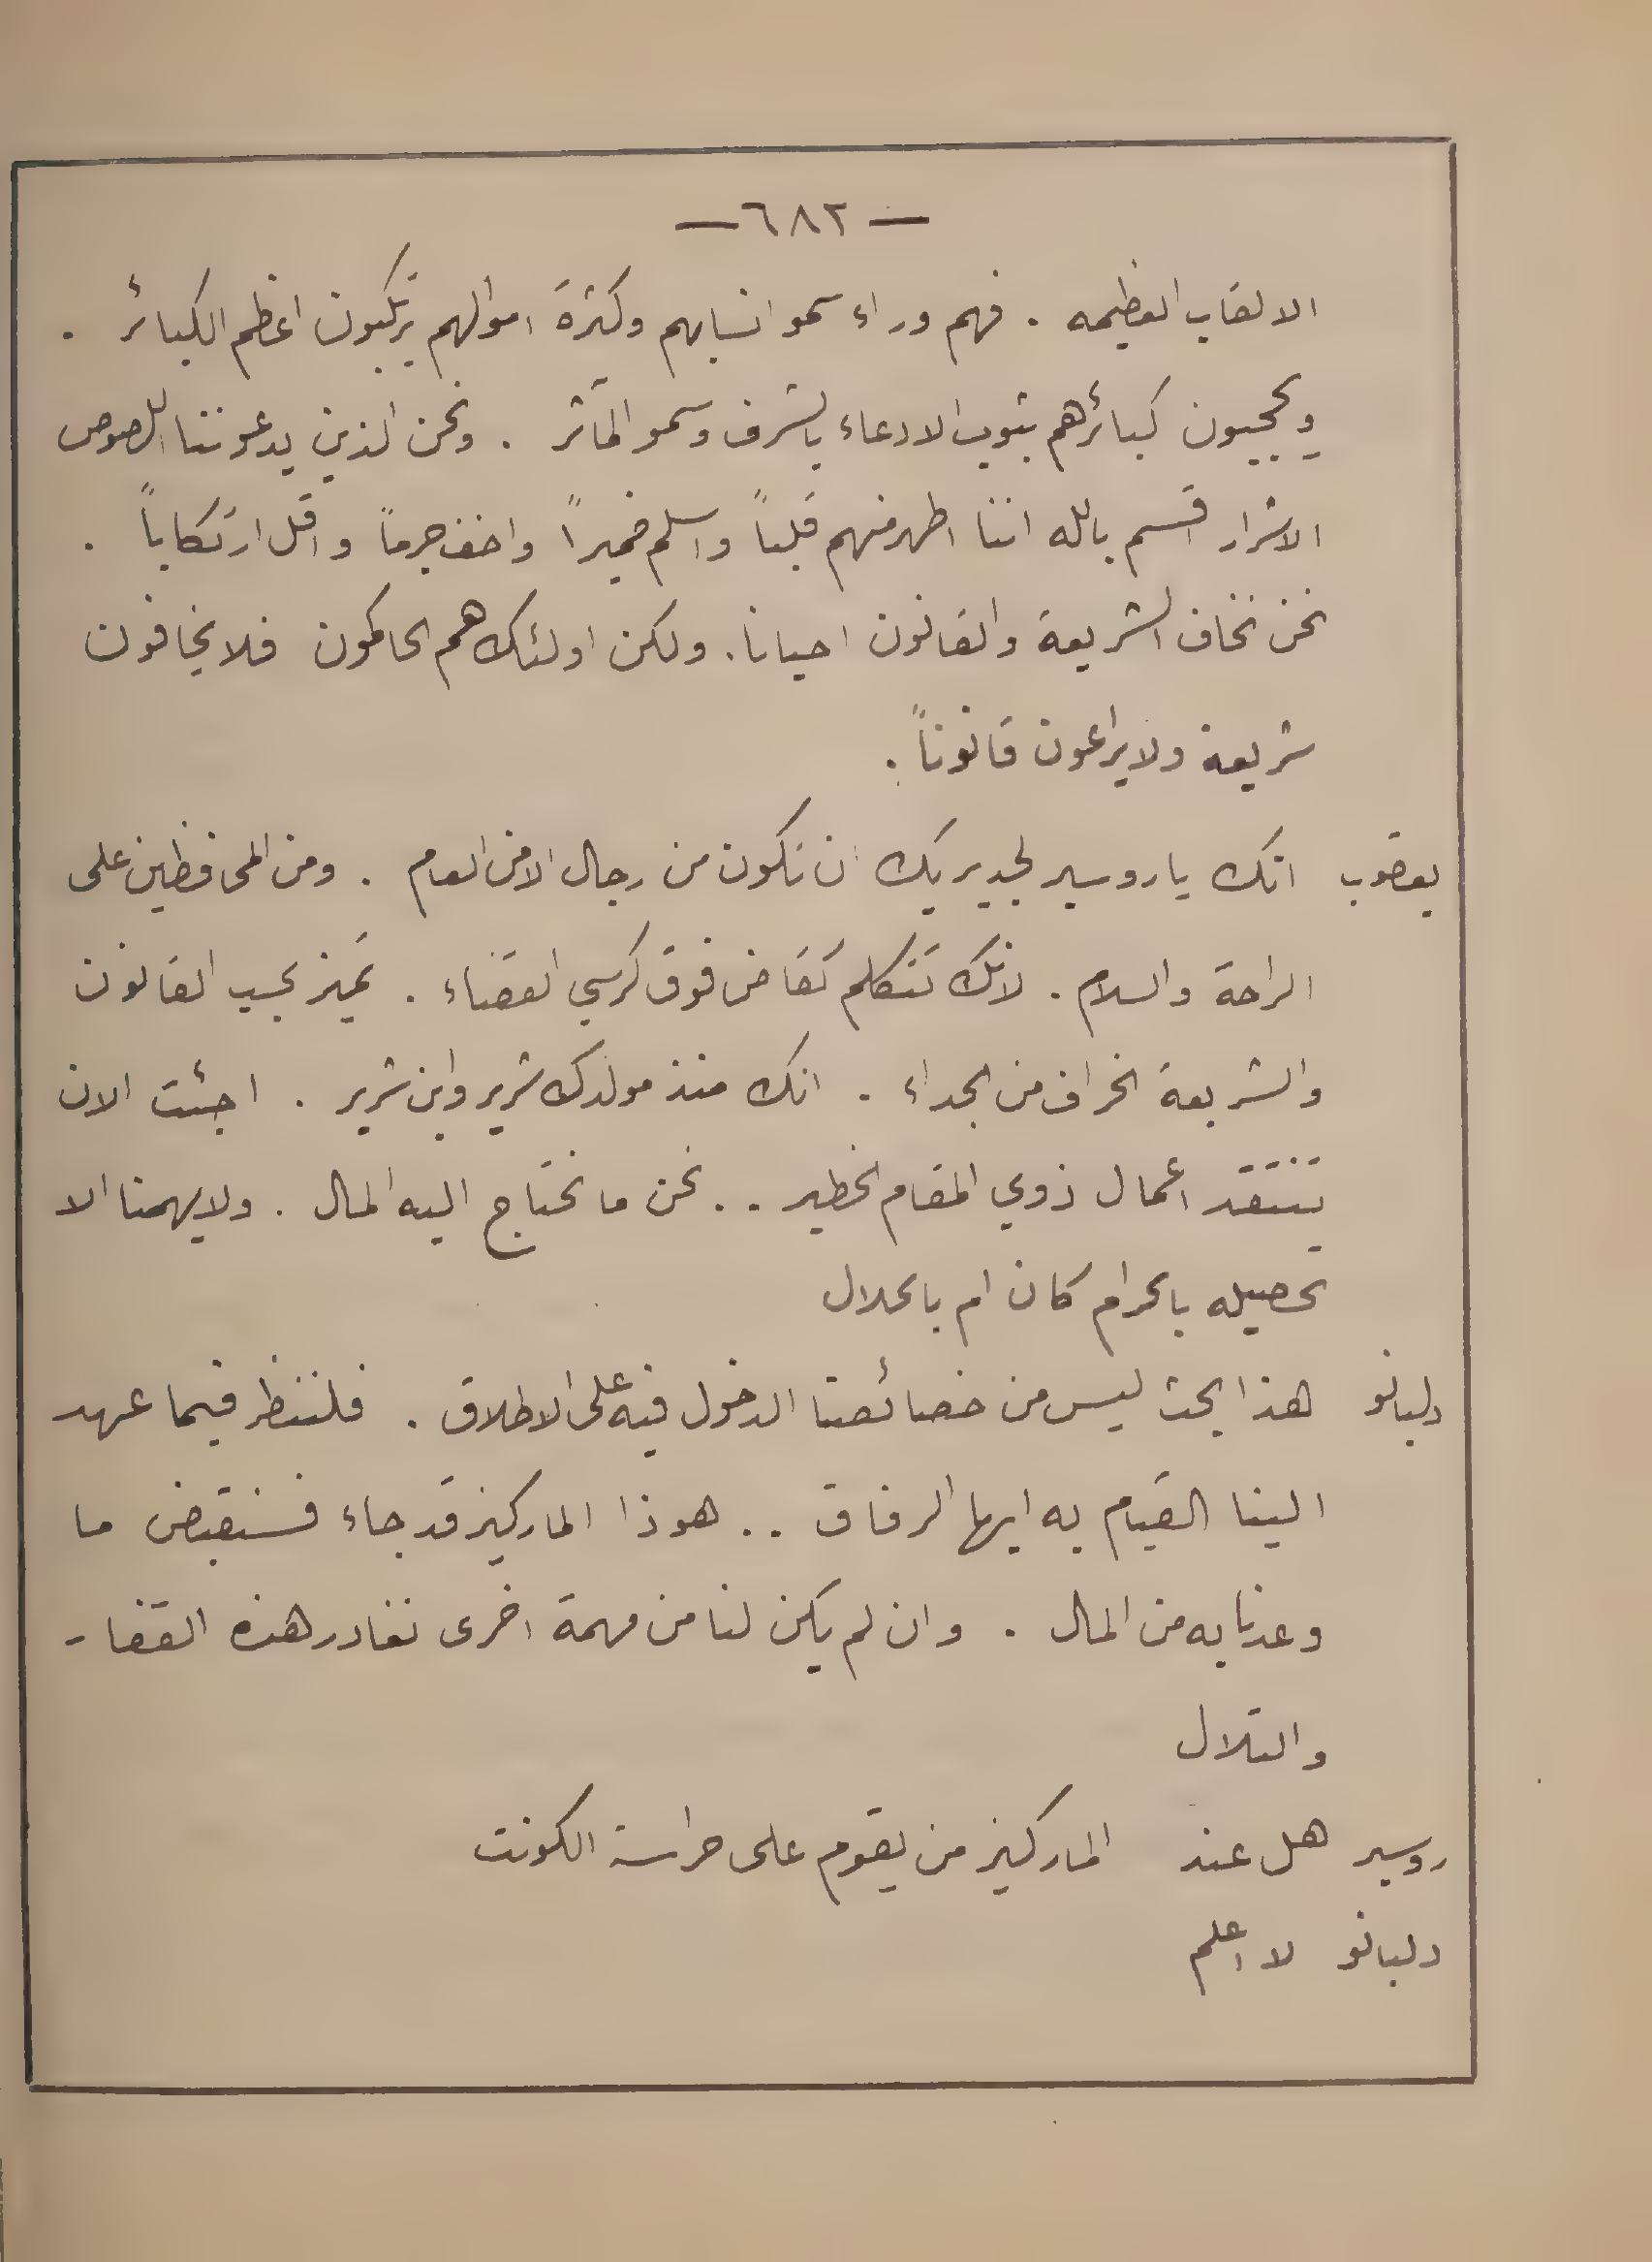 — ٦٨٢ —
الالقاب العظيمه . فهم وراء سمو انسابهم وكثرة اموالهم يرتكبون اعظم الكبائر .
ويحجبون كبائرهم بثوب الادعاء بالشرف وسمو المآثر . ونحن الذين يدعوننا اللصوص
الاشرار اقسم بالله اننا اطهر منهم قلباً واسلم ضميراً واخف جرماً واقل ارتكاباً .
نحن نخاف الشريعة والقانون احيانا . ولكن اولئك هم الحاكمون فلا يخافون
شريعة ولا يراعون قانوناً .
يعقوب انك يا روسير لجدير بك ان تكون من رجال الامن العام . ومن المحافظين على
الراحة والسلام . لانك تتكلم كقاض فوق كرسي القضاء . تميز بحسب القانون
والشريعة الخراف من الجداء . انك منذ مولدك شرير وابن شرير . اجئت الان
تنتقد اعمال ذوي المقام الخطير .. نحن ما نحتاج اليه المال . ولا يهمنا الا
تحصيله بالحرام كان ام بالحلال
دلبانو هذا بحث ليس من خصائصنا الدخول فيه على الاطلاق . فلننظر فيما عهد
الينا القيام به ايها الرفاق .. هوذا الماركيز قد جاء فسنقبض ما
وعدنا به من المال . وان لم يكن لنا من مهمة اخرى نغادر هذه القفار
والتلال
روسير هل عند الماركيز من يقوم على حراسة الكونت
دلبانو لا اعلم